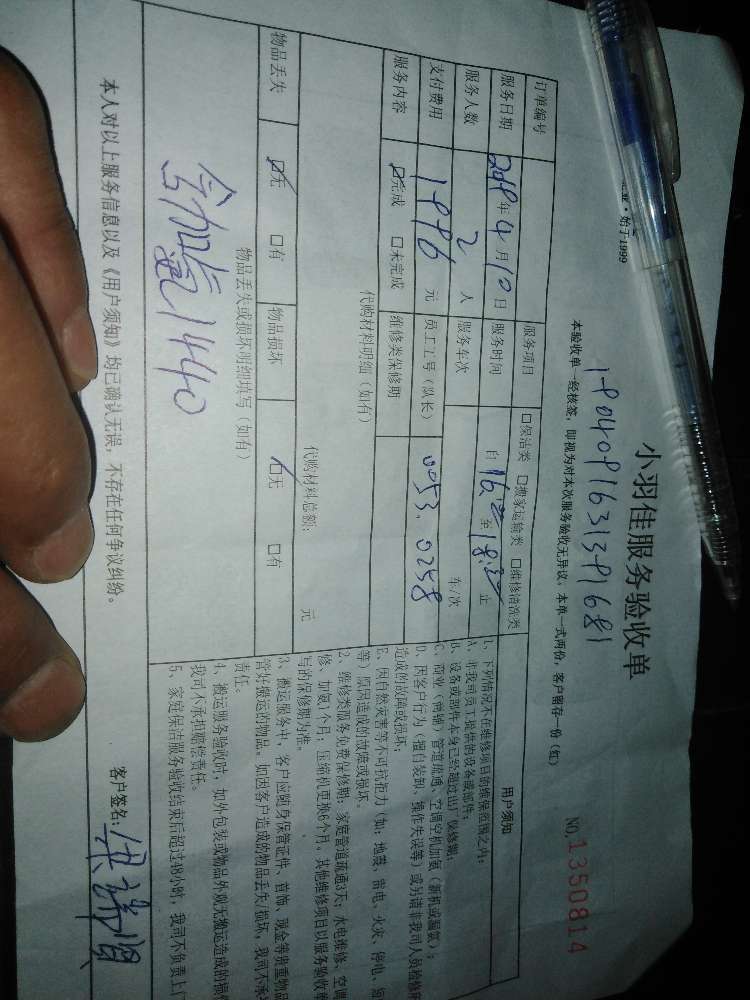 业·始于1999
小羽佳服务验收单
NO.1350814
本验收单一经核签，即视为对本次服务验收无异议。本单一式两份，客户留存一份（红）
订单编号
服务项目 □保洁类 □搬家运输类 □维修清洗类
服务日期 2019年4月10日 服务时间 自 至 止
服务人数 2人 服务车次 车/次
支付费用 元 员工工号（队长） 0053.0258
服务内容 ☑完成 □未完成 维修类保修期
代购材料明细（如有）
代购材料总额： 元
物品丢失 ☑无 □有 物品损坏 ☑无 □有
物品丢失或损坏明细填写（如有）
含加 1440
用户须知
1、下列情况不在维修项目的维保范围之内：
A、非我司员工提供的设备或部件；
B、设备或部件本身已经超过出厂保修期；
C、商业（商铺）管道疏通、空调空机加氨（新机或漏氨）；
D、因客户行为（擅自装卸、操作失误等）或另请非我司人员维修所
造成的故障或损坏；
E、因自然灾害等不可抗拒力（如：地震、雷电、火灾、停电、短
等）原因造成的故障或损坏。
2、维修类服务免费保修期：家庭管道疏通3天；水电维修、空调
修、加氨1个月；压缩机更换6个月。其他维修项目以服务验收单
写的保修期为准。
3、搬运服务中，客户应随身保管证件、首饰、现金等贵重物品
管好搬运的物品。如因客户造成的物品丢失/损坏，我司不承
责任。
4、搬运服务验收时，如外包装或物品外观无搬运造成的损
我司不承担赔偿责任。
5、家庭保洁服务验收结束后超过48小时，我司不负责上门
本人对以上服务信息以及《用户须知》均已确认无误，不存在任何争议纠纷。
客户签名：